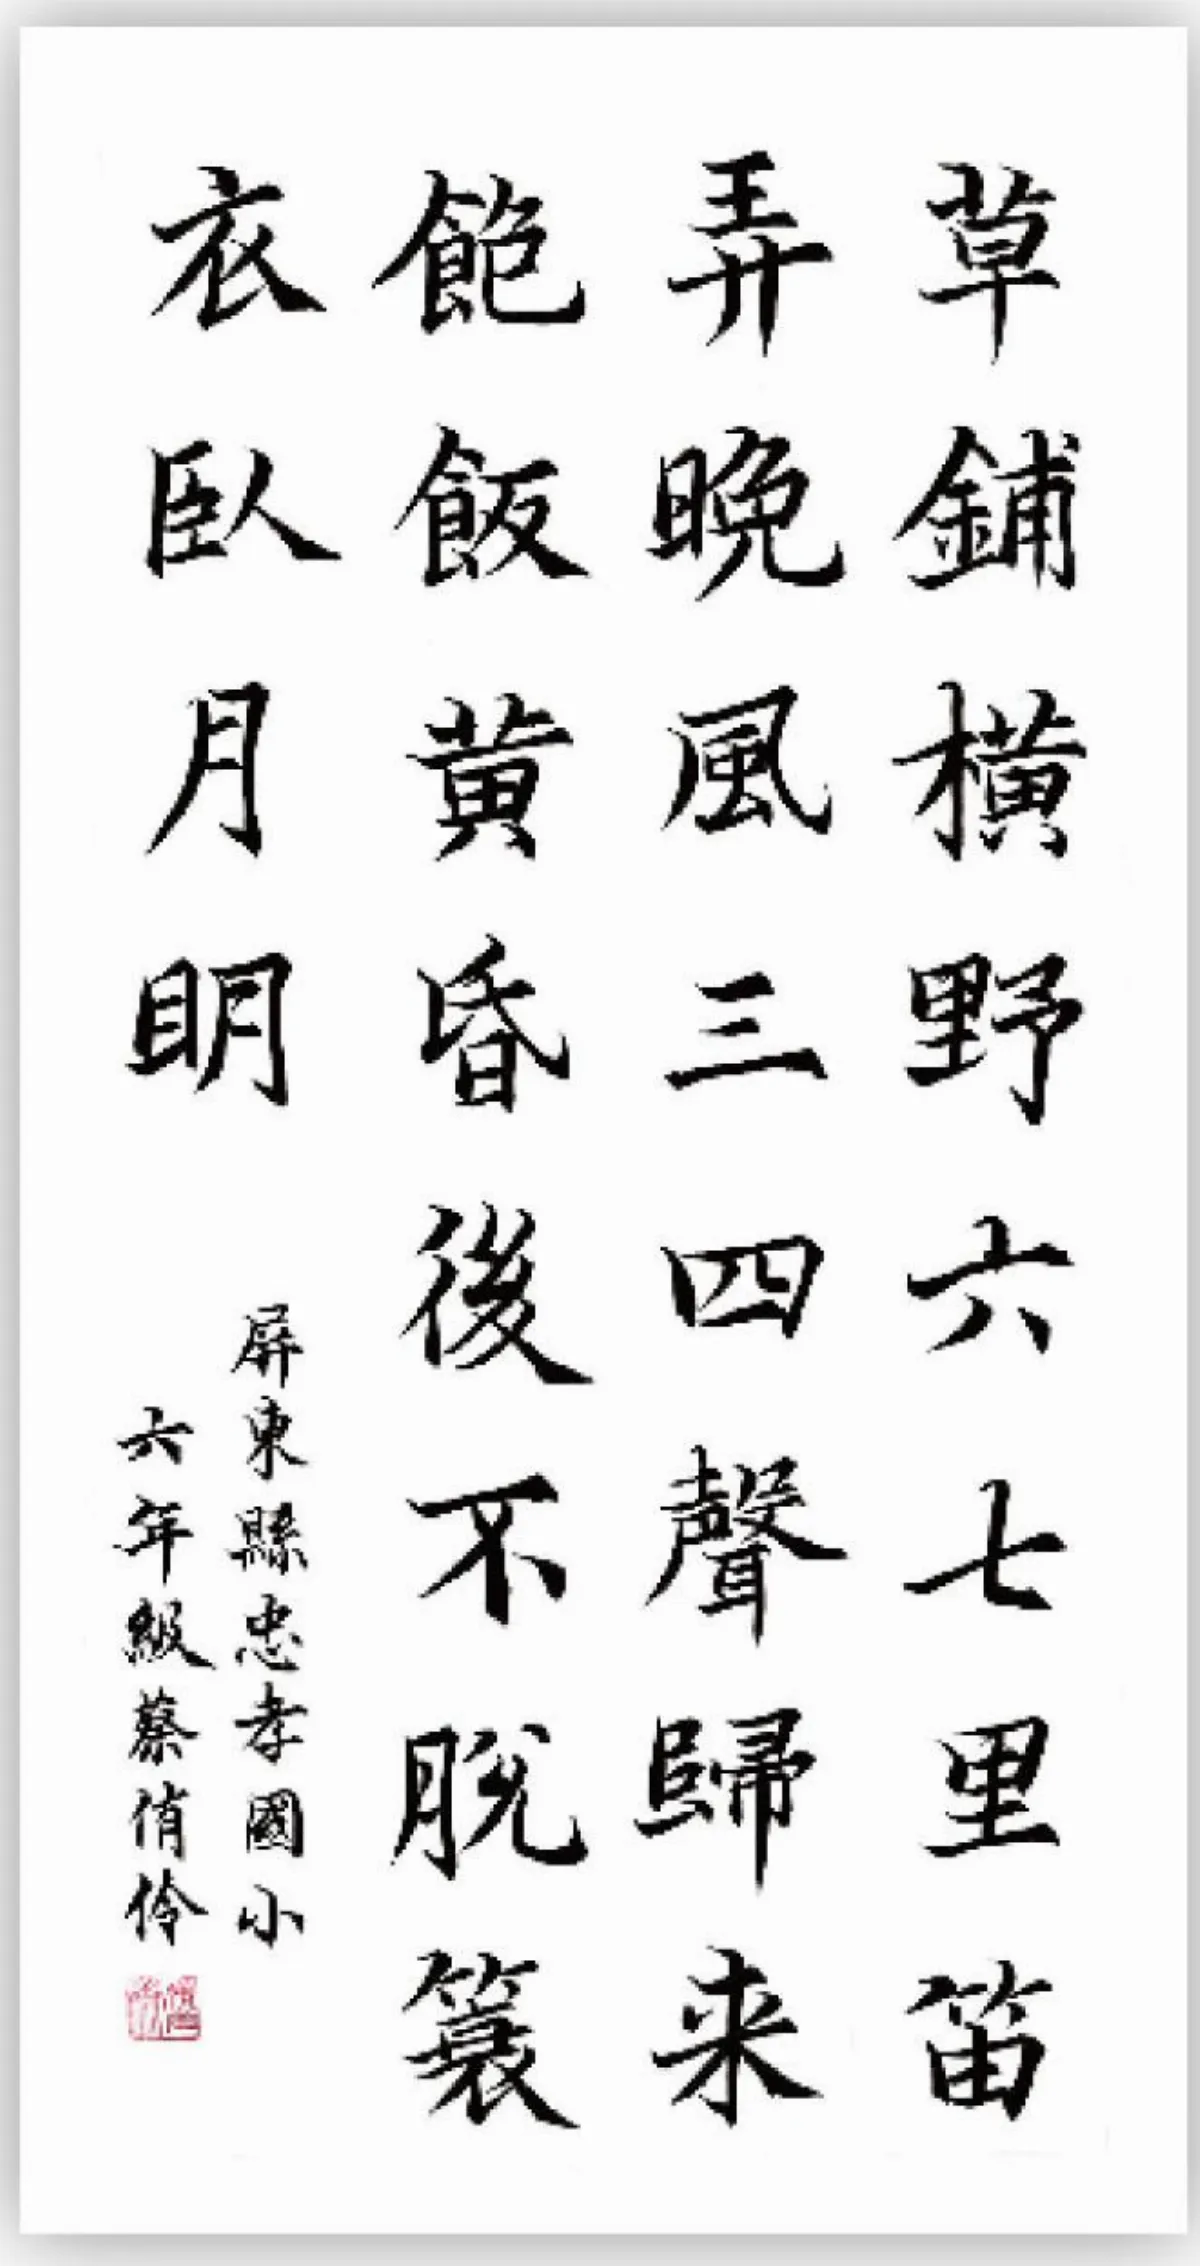 草鋪橫野六七里笛
弄晚風三四聲歸来
飽飯黃昏後不脫簑
衣臥月明
屏東縣忠孝國小
六年級蔡俏伶